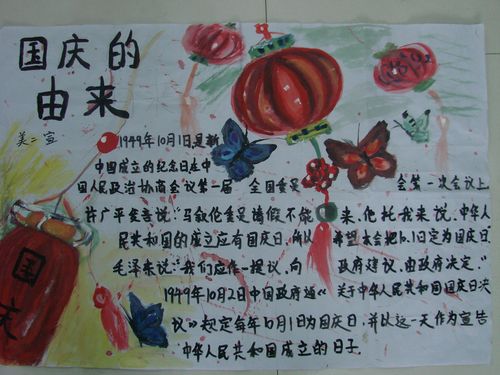 国庆的
由来
美二宣
1949年10月1日是新
中国成立的纪念日在中
国人民政治协商会议第一届 全国委员 会第一次会议上
许广平发言说:"马叙伦委员请假不能 来,他托我来说,中华人
民共和国的成立应有国庆日,所以 希望本会把10.1日定为国庆日
毛泽东说:"我们应作一提议,向 政府建议,由政府决定."
1949年10月2日中国政府通 关于中华人民共和国国庆日决
议》规定每年10月1为国庆日,并以这一天作为宣告
中华人民共和国成立的日子.
国
庆